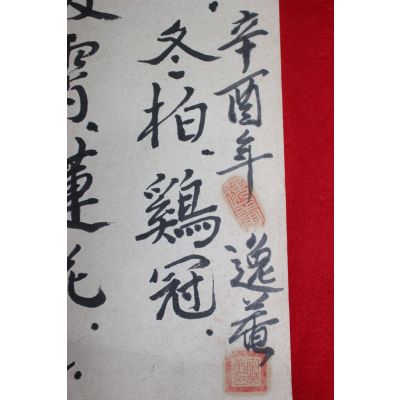 霄、蓮花.
冬柏.鷄冠.
辛酉年 逸菴